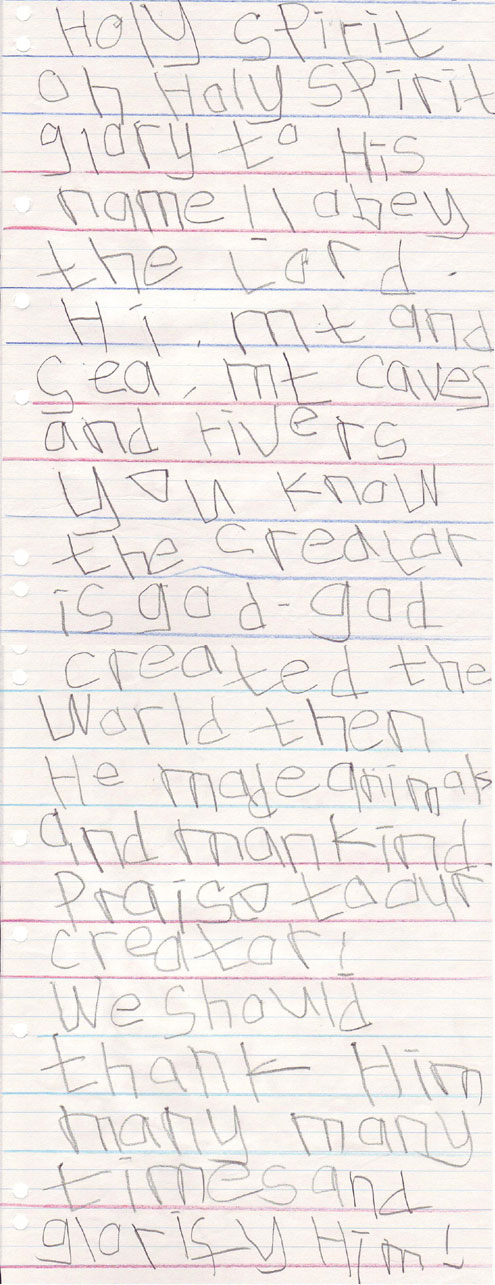 Holy Spirit
oh Holy Spirit
glory to His
name I I obey
the Lord.
Hi, mt and
Sea, mt caves
and rivers
you know
the creator
is god - god
created the
World then
He made animals
and mankind.
Praise to our
creator!
We should
thank Him
many many
times and
glorify Him!